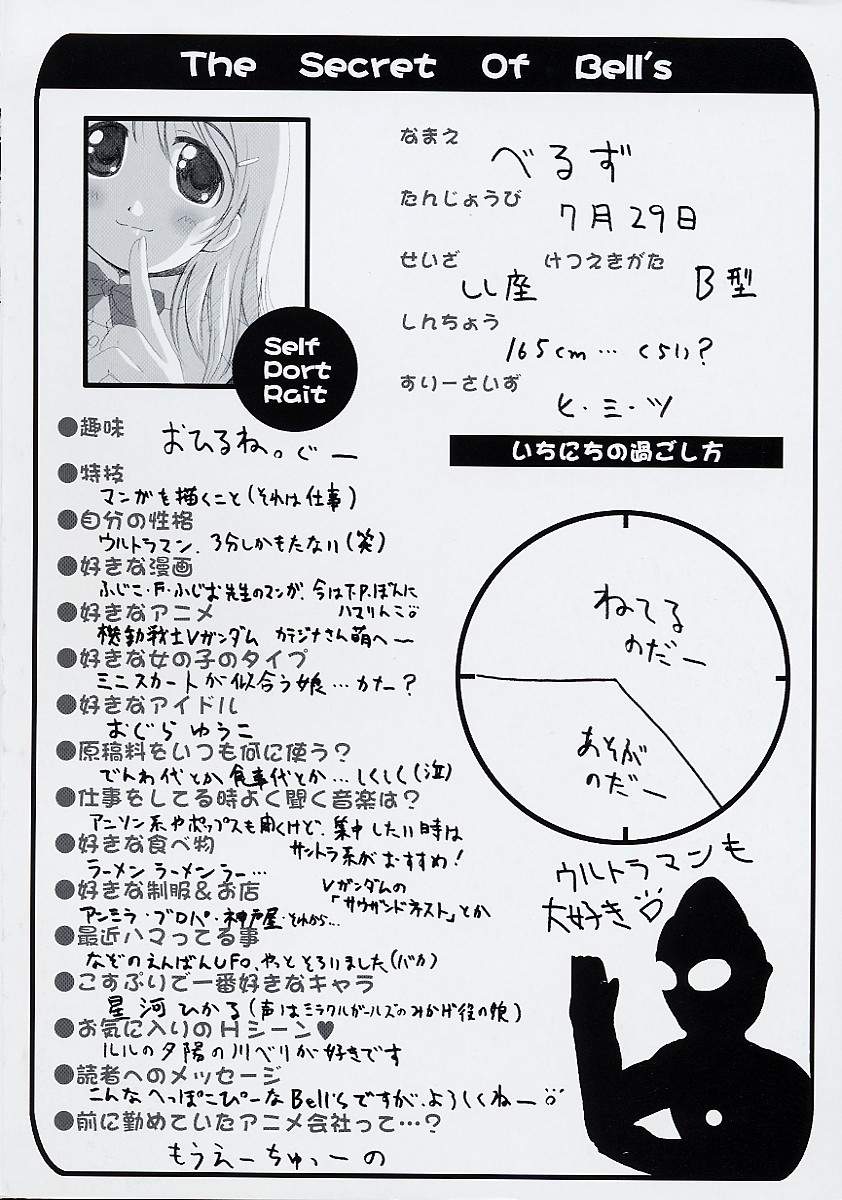 The Secret Of Bell's
Self
Port
Rait
なまえ
べるず
たんじょうび
7月29日
せいざ けつえきがた
しし座 B型
しんちょう
165cm…くらい?
すりーさいず
ヒ・ミ・ツ
●趣味
おひるね。ぐー
●特技
マンガを描くこと(それは仕事)
●自分の性格
ウルトラマン、3分しかもたない(笑)
●好きな漫画
ふじこ・F・ふじお先生のマンガ、今はT.P.ぼんに
ハマりんこ
●好きなアニメ
機動戦士Vガンダム カテジナさん萌へー
●好きな女の子のタイプ
ミニスカートが似合う娘…かな?
●好きなアイドル
おぐら ゆうこ
●原稿料をいつも何に使う?
でんわ代とか食事代とか…しくしく(泣)
●仕事をしてる時よく聞く音楽は?
アニソン系やポップスも聞くけど、集中したい時は
サントラ系がおすすめ!
Vガンダムの
「サウザンドネスト」とか
●好きな食べ物
ラーメン ラーメン ラー…
●好きな制服&お店
アンミラ・ブロパ・神戸屋・それから…
●最近ハマってる事
なぞのえんばんUFO、やっとそろいました(バカ)
●こすぷりで一番好きなキャラ
星河ひかる(声はミラクルガールズのみかげ役の娘)
●お気に入りのHシーン♥
ルルの夕陽の川べりが好きです
●読者へのメッセージ
こんなへっぽこぴーなBell'sですが、よろしくねー
●前に勤めていたアニメ会社って…?
もうえーちゅーの
いちにちの過ごし方
ねてる
のだー
あそぶ
のだー
ウルトラマンも
大好き